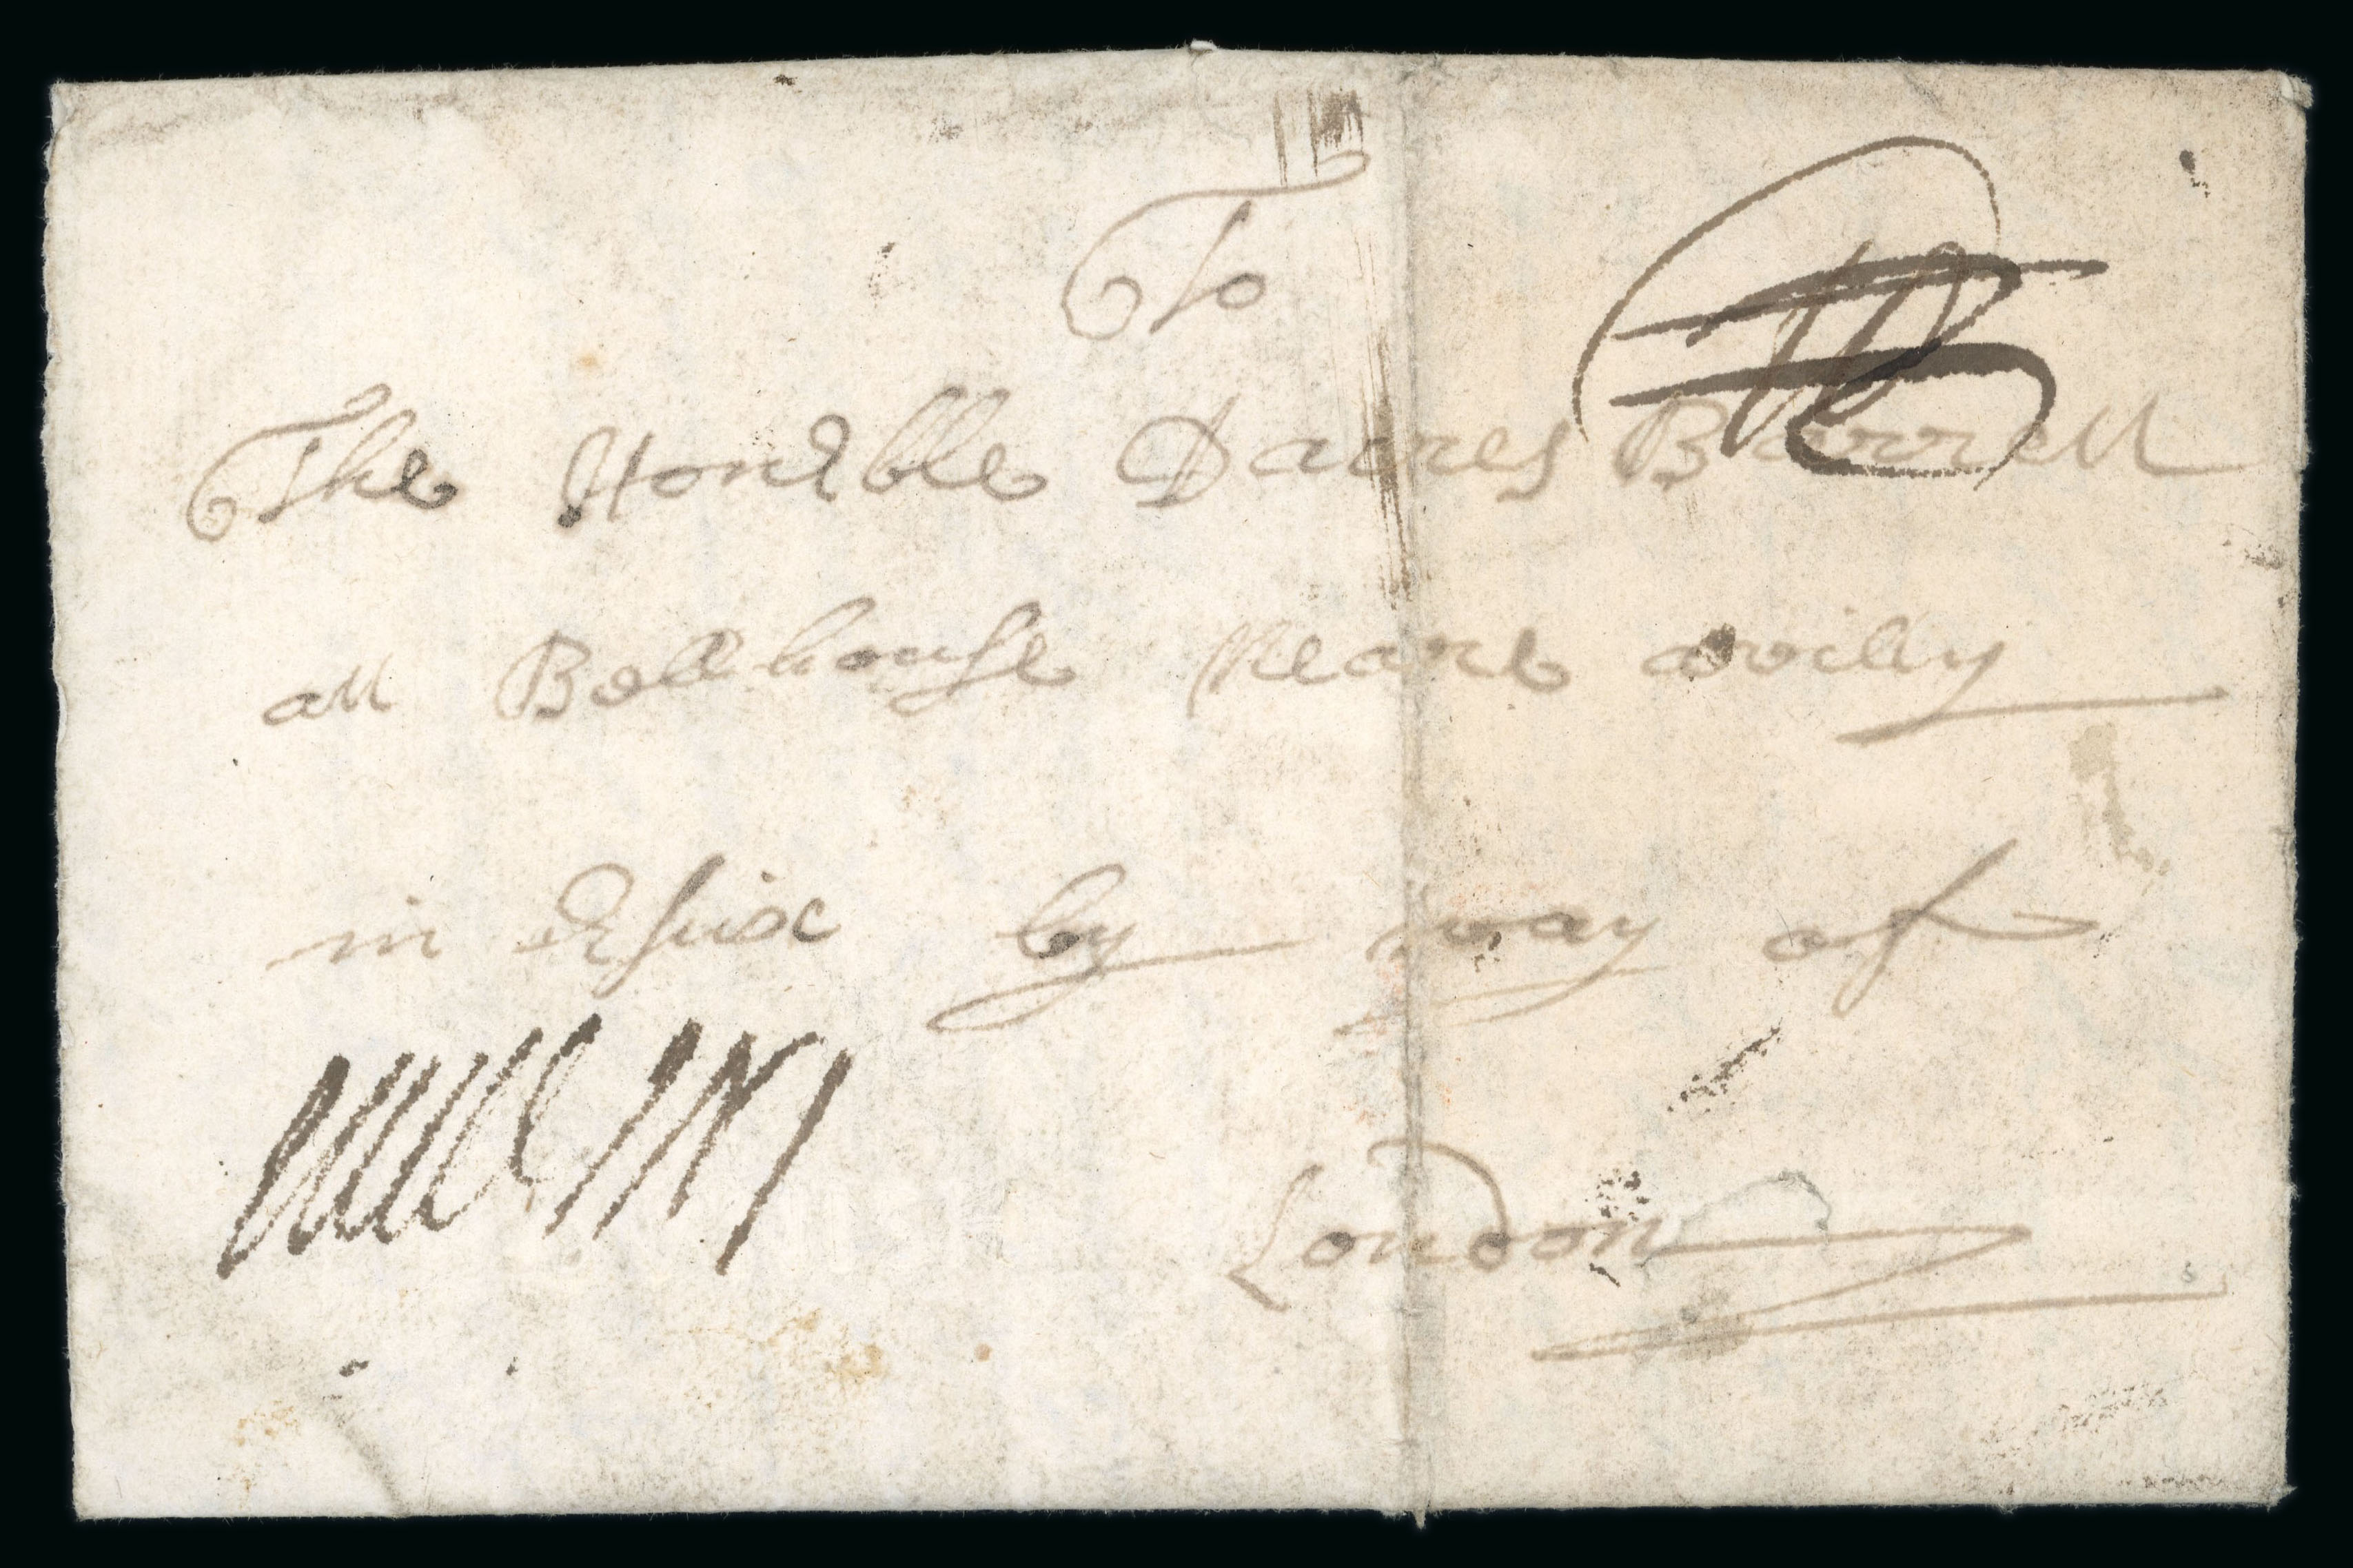 To
The Honble Dacres Barrett
att Bellhouse Neare avilly
in Essix by way of
London